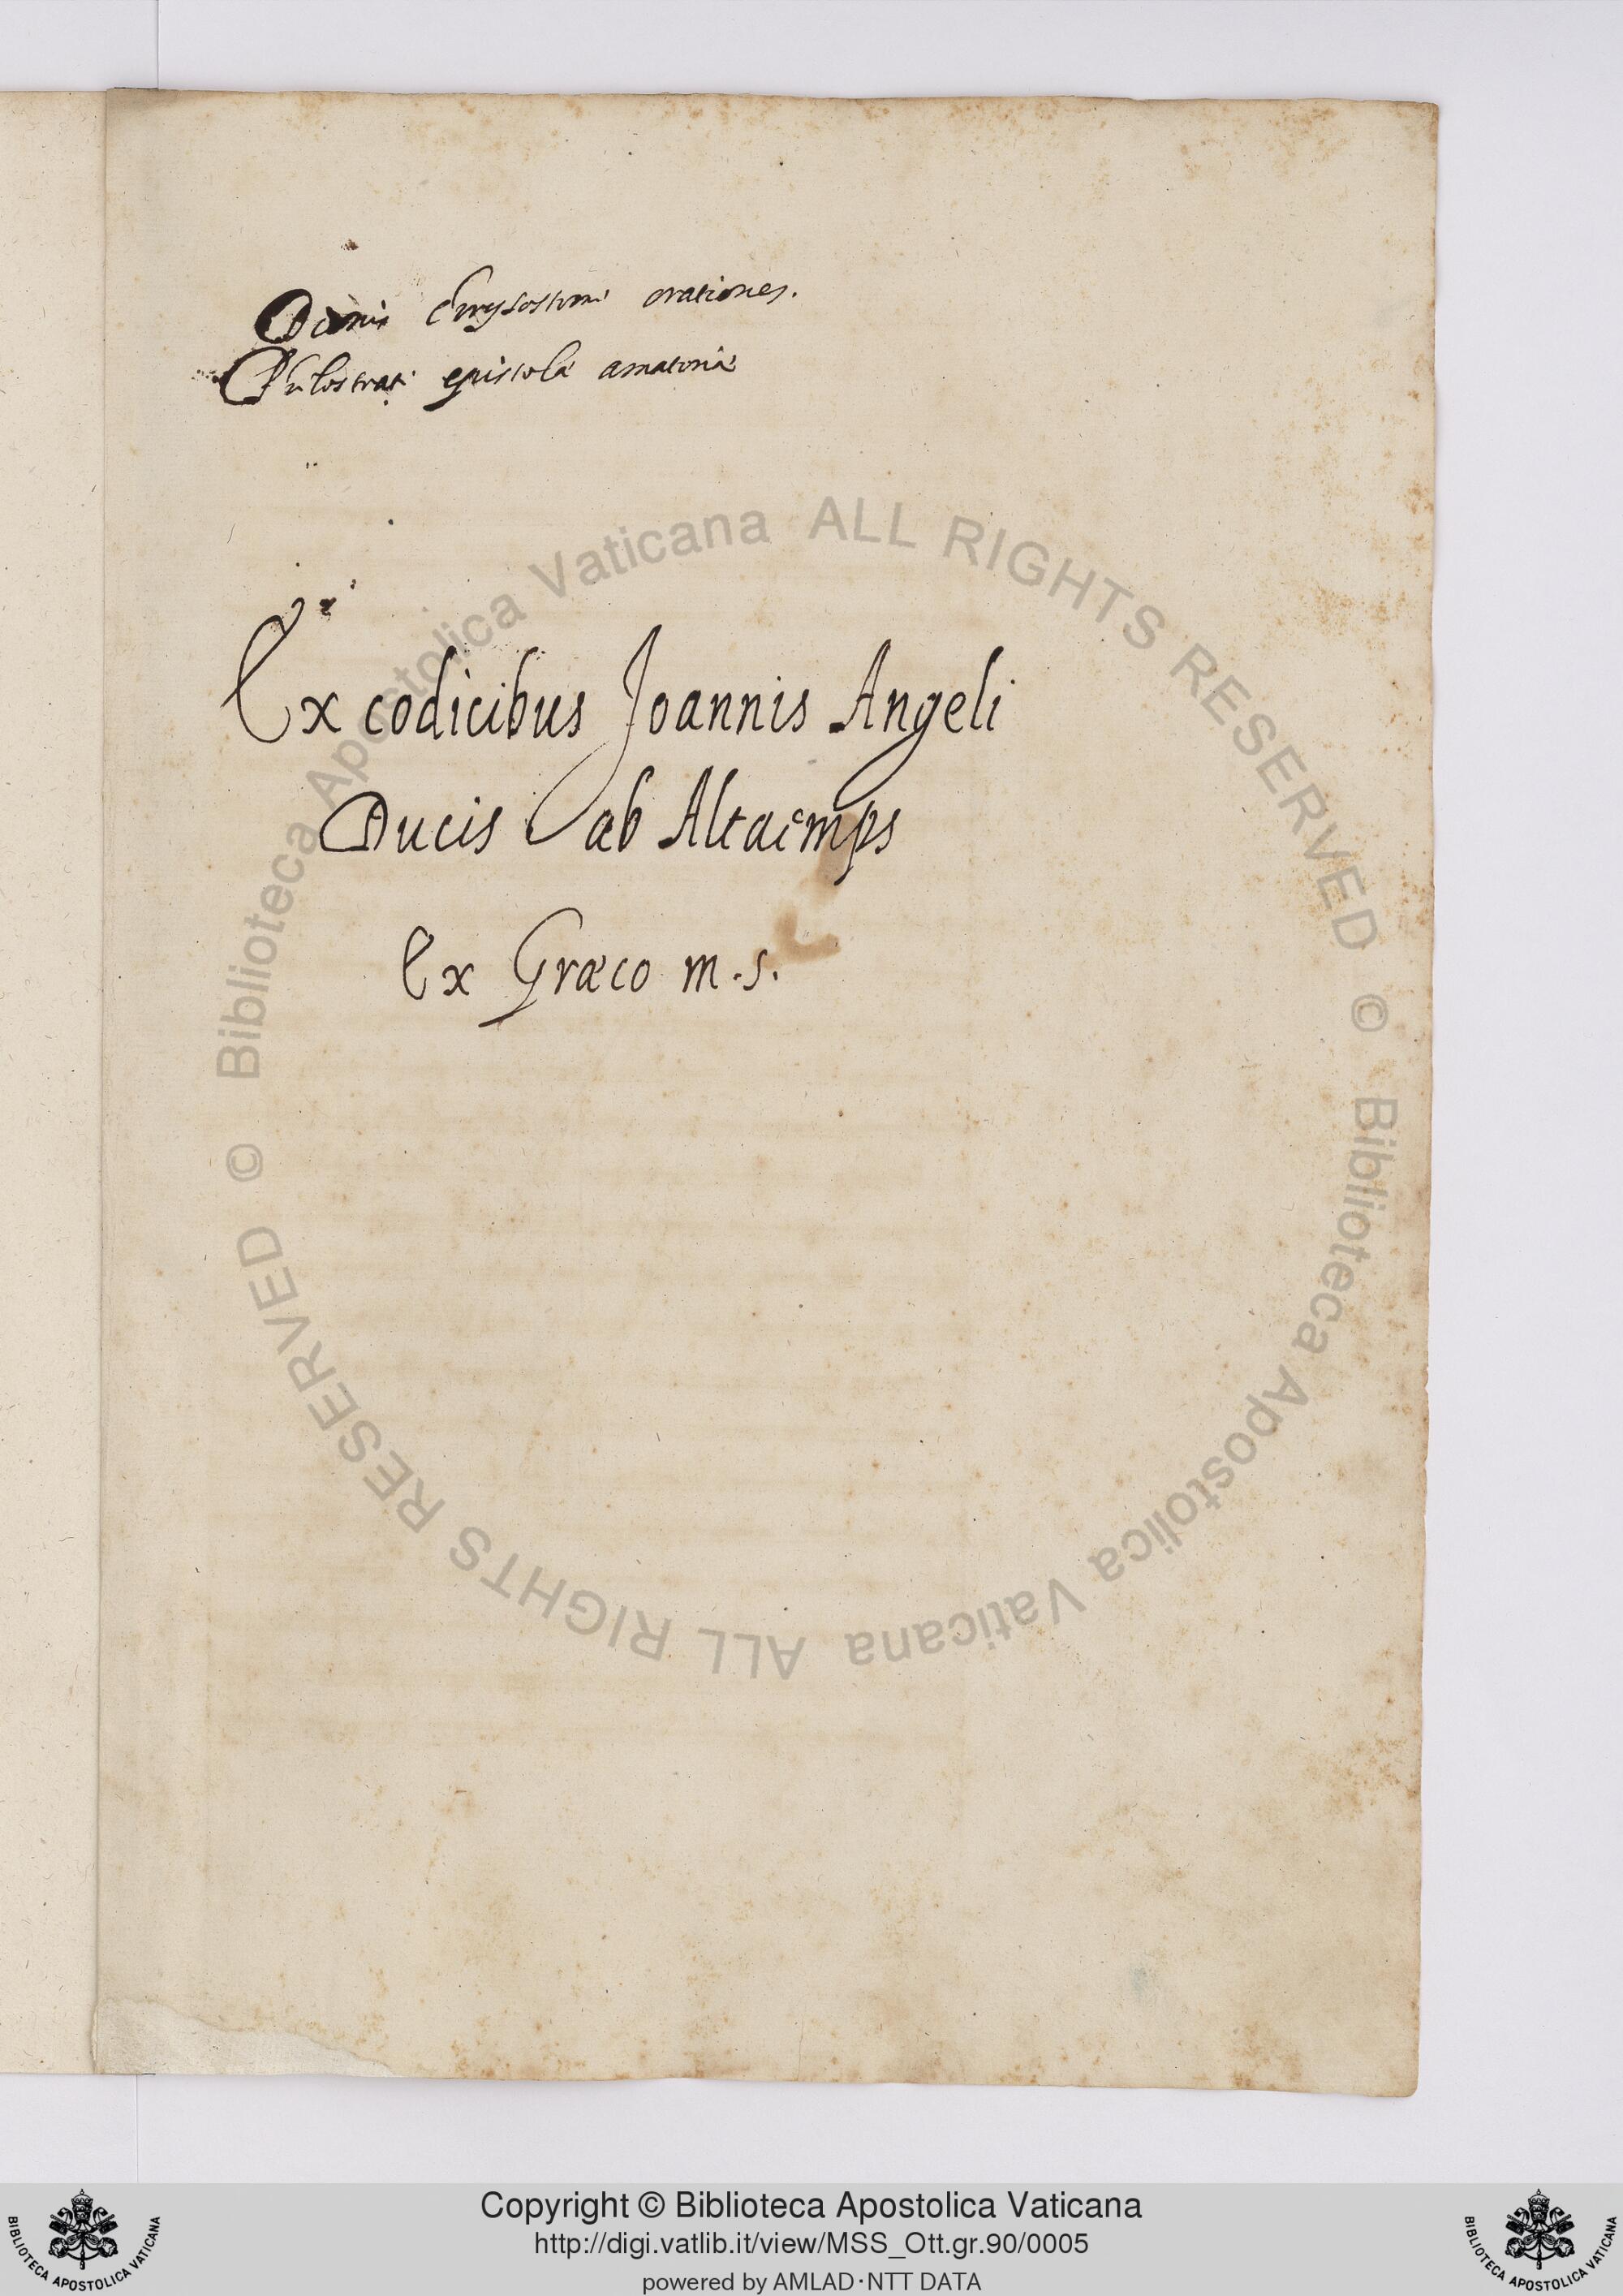 Dionis Chrysostomi orationes.
Philostrati epistolæ amatoriæ
Ex codicibus Joannis Angeli
Ducis ab Altaemps
Ex Græco m.s.
© Biblioteca Apostolica Vaticana ALL RIGHTS RESERVED
© Biblioteca Apostolica Vaticana ALL RIGHTS RESERVED
Copyright © Biblioteca Apostolica Vaticana
http://digi.vatlib.it/view/MSS_Ott.gr.90/0005
powered by AMLAD·NTT DATA
BIBLIOTECA APOSTOLICA VATICANA
BIBLIOTECA APOSTOLICA VATICANA